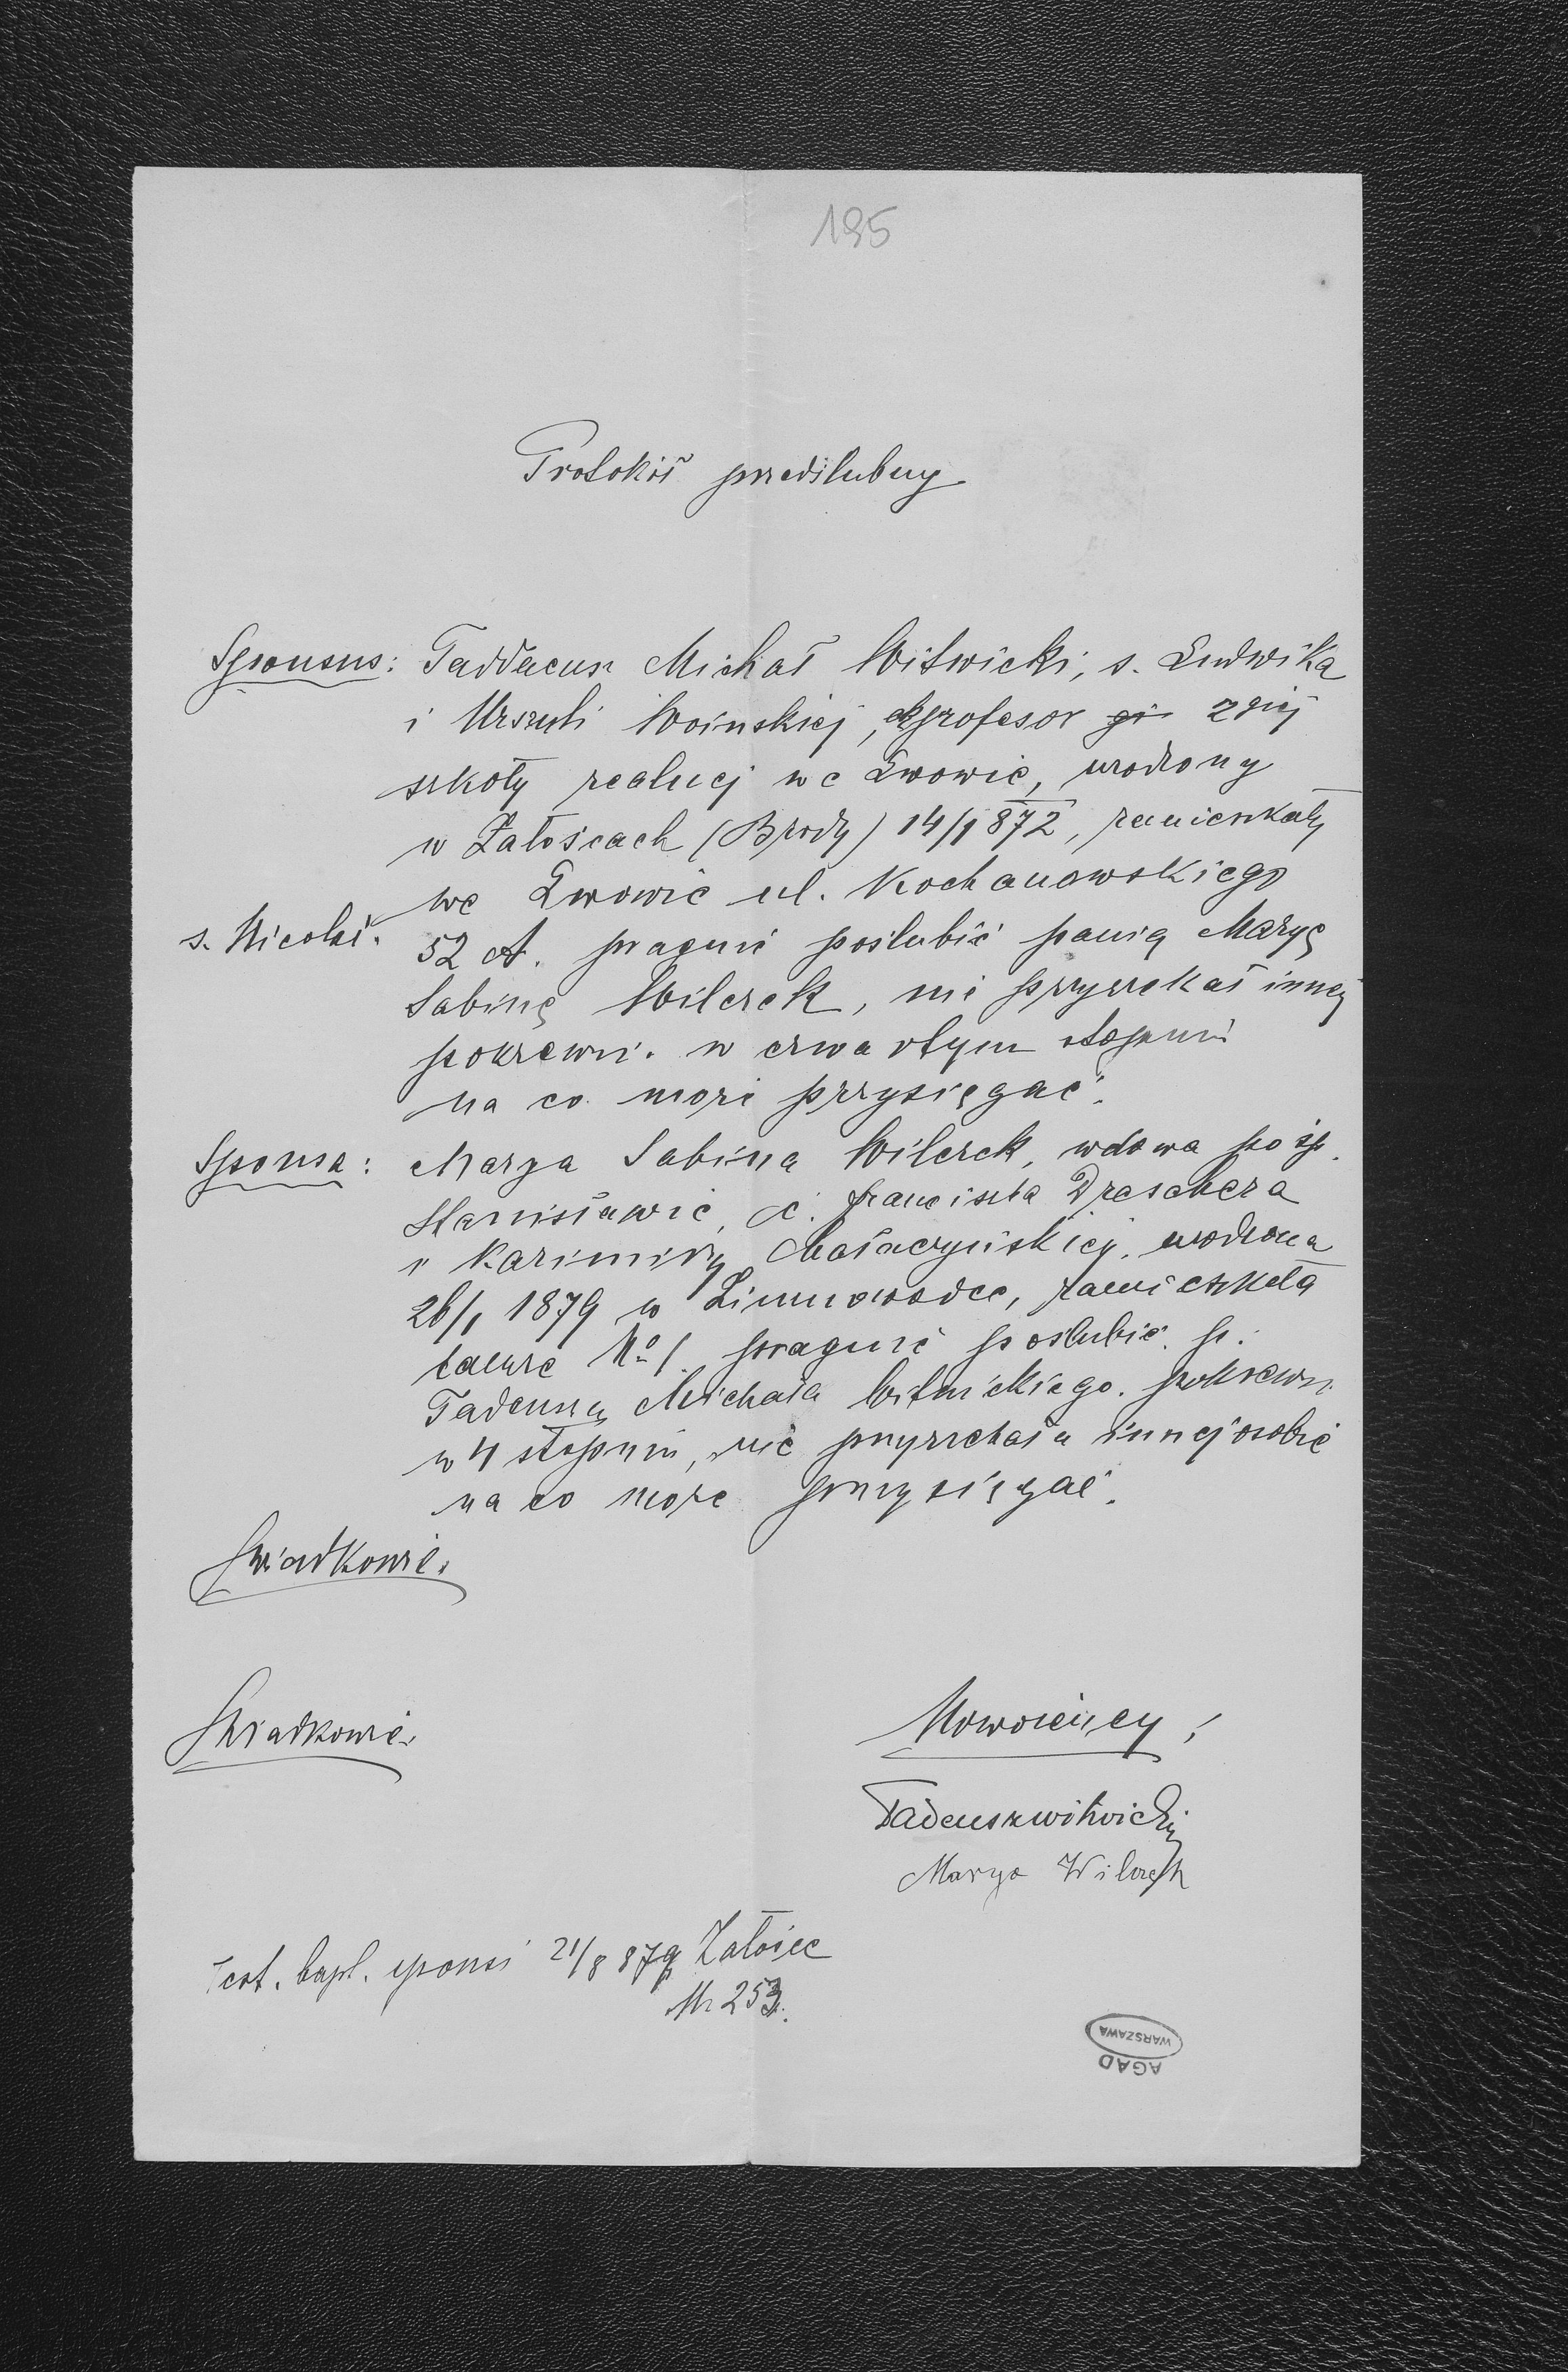 195
Protokół przedślubny
Sponsus: Taddaeusz Michał Witwicki, s. Ludwika
i Urszuli Woińskiej, profesor gi 2giej
szkoły realnej we Lwowie, urodzony
w Załoścach (Brody) 14/1 872, zamieszkały
we Lwowie ul. Kochanowskiego
s. Nicolai.
52 A. pragnie poślubić panią Maryę
Sabinę Wilczek, nie przyrzekał innej
pokrewn. w czwartym stopniu
na co może przysięgać.
Sponsa: Marya Sabina Wilczek, wdowa po śp.
Stanisławie, c. Franciszka Dreschera
i Kazimiry urodzona
26/1 1879 w Zimnowodce, zamieszkała
tamże No 1. pragnie poślubić p.
Tadeusza Michała Witwickiego. pokrewn.
w 4 stopniu, nie przyrzekała innej osobie
na co może przysięgać.
Świadkowie.
Świadkowie.
Nowożeńcy:
Tadeusz Witwicki
Marya Wilczek
Test. bapt. sponsi 21/8 879 Załośce
Nr 253.
WARSZAWA
AGAD